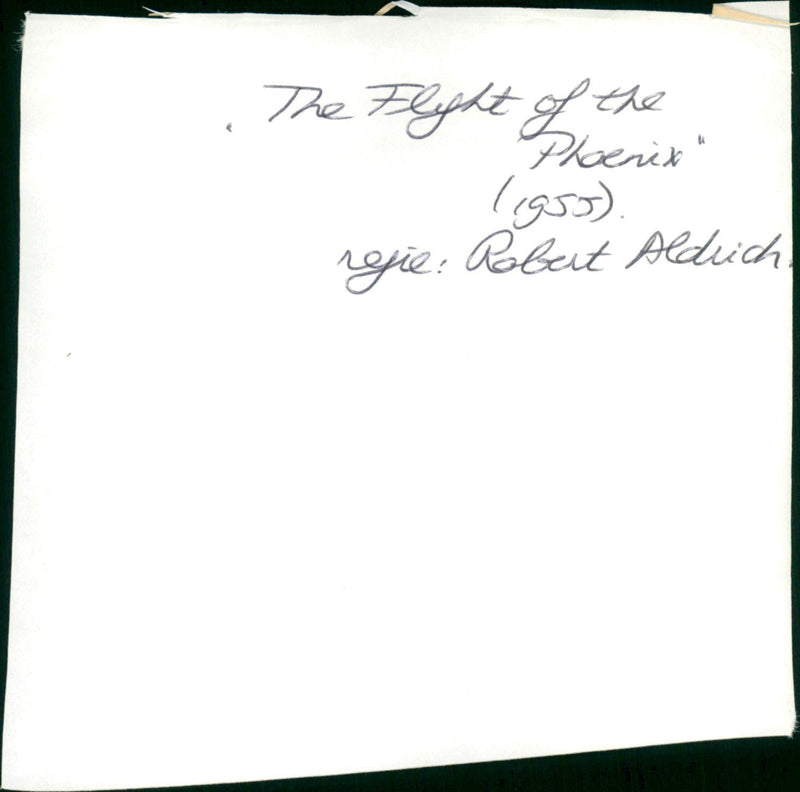 "The Flyght of the
Phoenix"
(1955).
regie: Robert Aldrich.